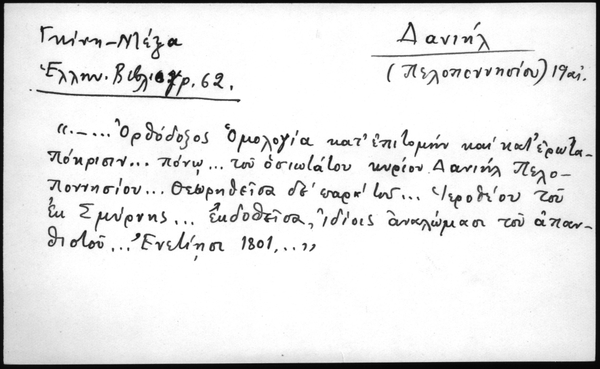 Γκίνη-Μέξα
Δανιήλ
Ἑλλην. Βιβλιογρ. 62.
(Πελοποννησίου) 19 αἰ.
«.—... Ὀρθόδοξος Ὁμολογία κατ' ἐπιτομήν καί κατ' ἐρωτα-
πόκρισιν... πόνῳ... τοῦ ὁσιωτάτου κυρίου Δανιήλ Πελο-
ποννησίου... Θεωρηθεῖσα δέ... Ἱεροθέου τοῦ
ἐκ Σμύρνης... ἐκδοθεῖσα, ἰδίοις ἀναλώμασι τοῦ ἀπαν-
θιστοῦ... Ἐνετίῃσι 1801,...»